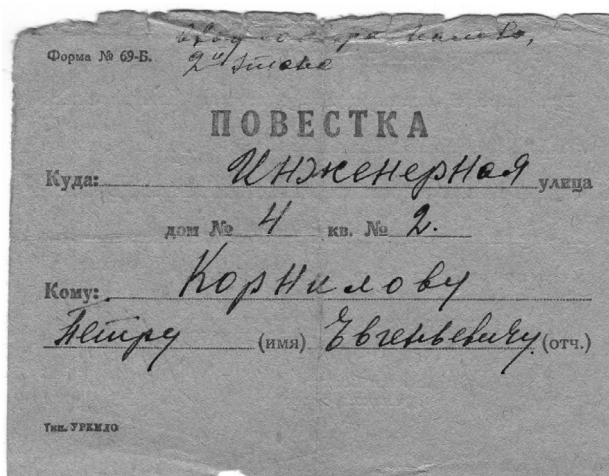 Форма № 69-Б.
2й этаж
ПОВЕСТКА
Куда: Инженерная улица
дом № 4 кв. № 2.
Кому: Корнилову
Петру (имя) Евгеньевичу (отч.)
Тип. УРКМЛО